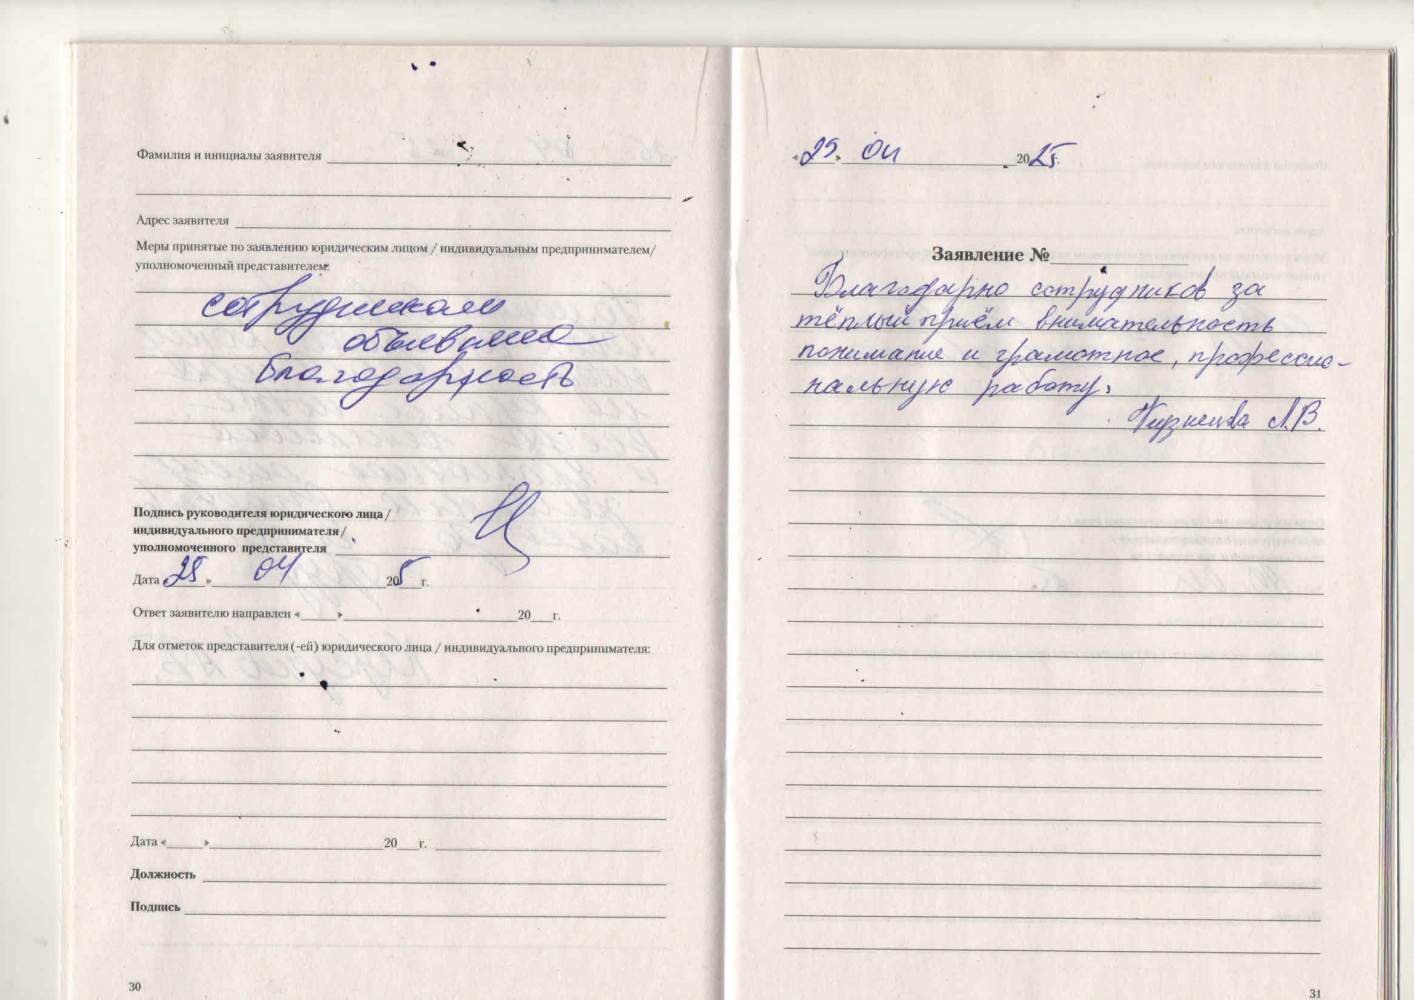 Фамилия и инициалы заявителя
Адрес заявителя
Меры принятые по заявлению юридическим лицом / индивидуальным предпринимателем/
уполномоченный представителем:
сотрудникам
объявлена
благодарность
Подпись руководителя юридического лица /
индивидуального предпринимателя /
уполномоченного представителя
Дата «25» 04 205 г.
Ответ заявителю направлен «____» ____ 20__ г.
Для отметок представителя (-ей) юридического лица / индивидуального предпринимателя:
Дата «____» ____ 20__ г.
Должность
Подпись
30
«25» 04 2025 г.
Заявление №
Благодарю сотрудников за
тёплый приём внимательность
понимание и грамотное, профессио-
нальную работу.
Кузнецова Л.В.
31